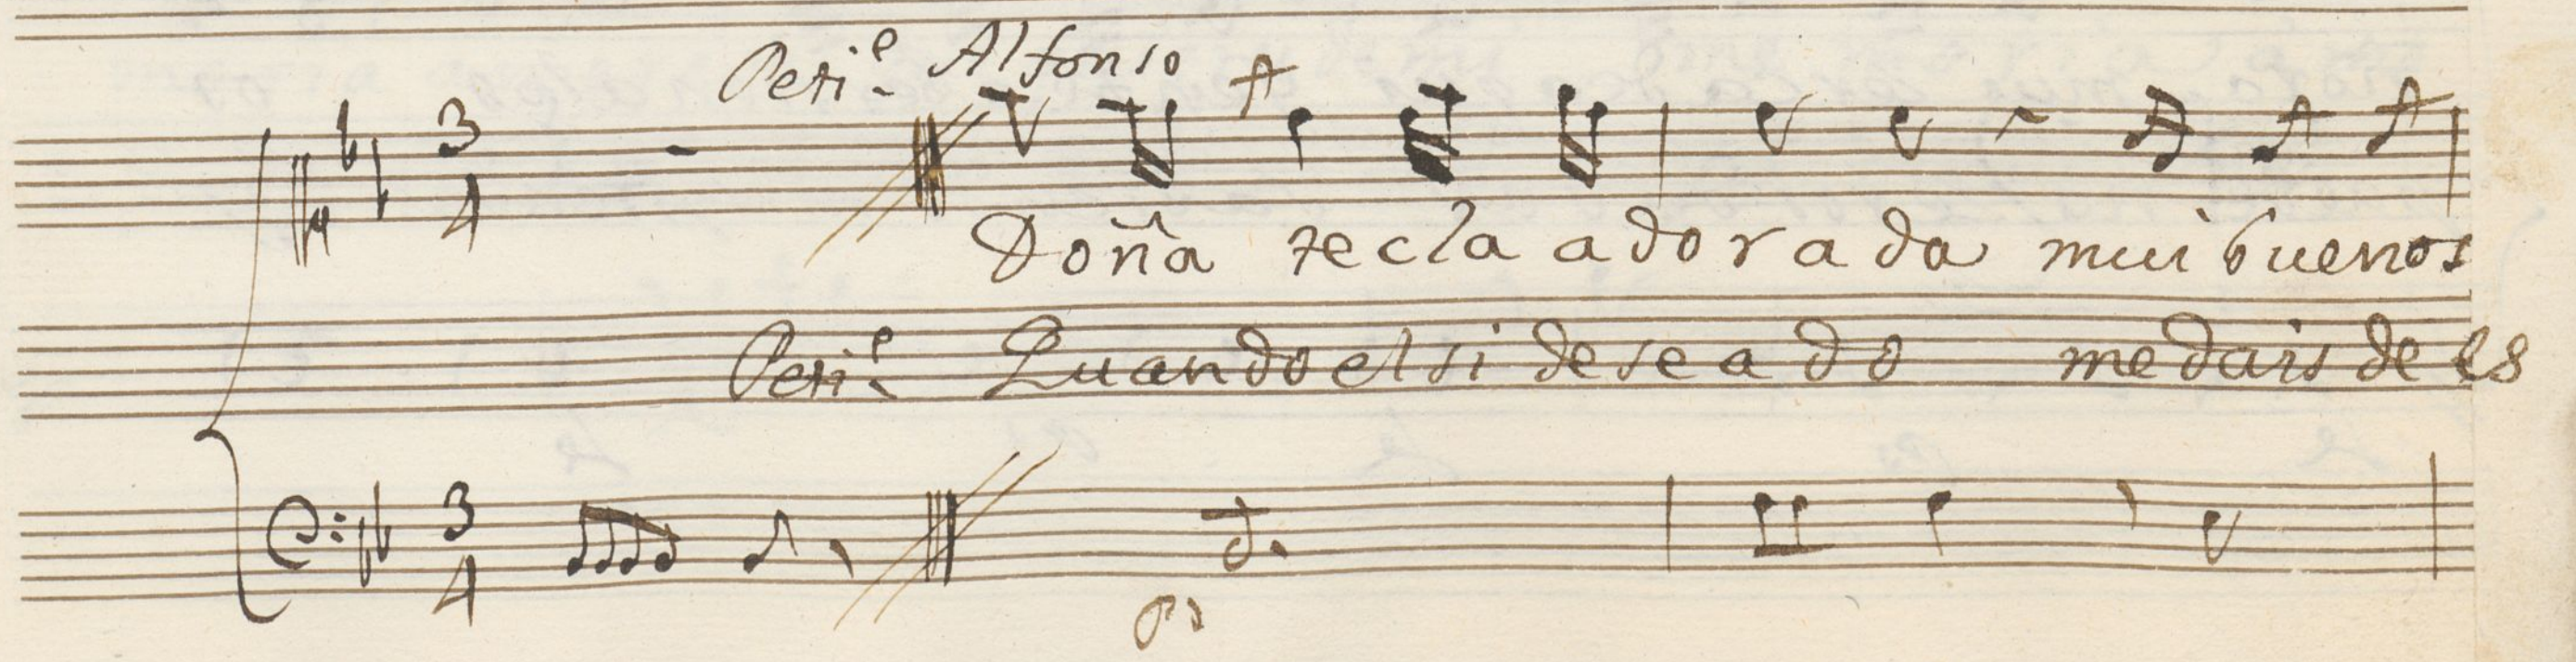 Peri.e Alfonso
3
4
Doña tecla adorada mui buenos
Peri.e Quando el si deseado me dais de es
3
4
Ps